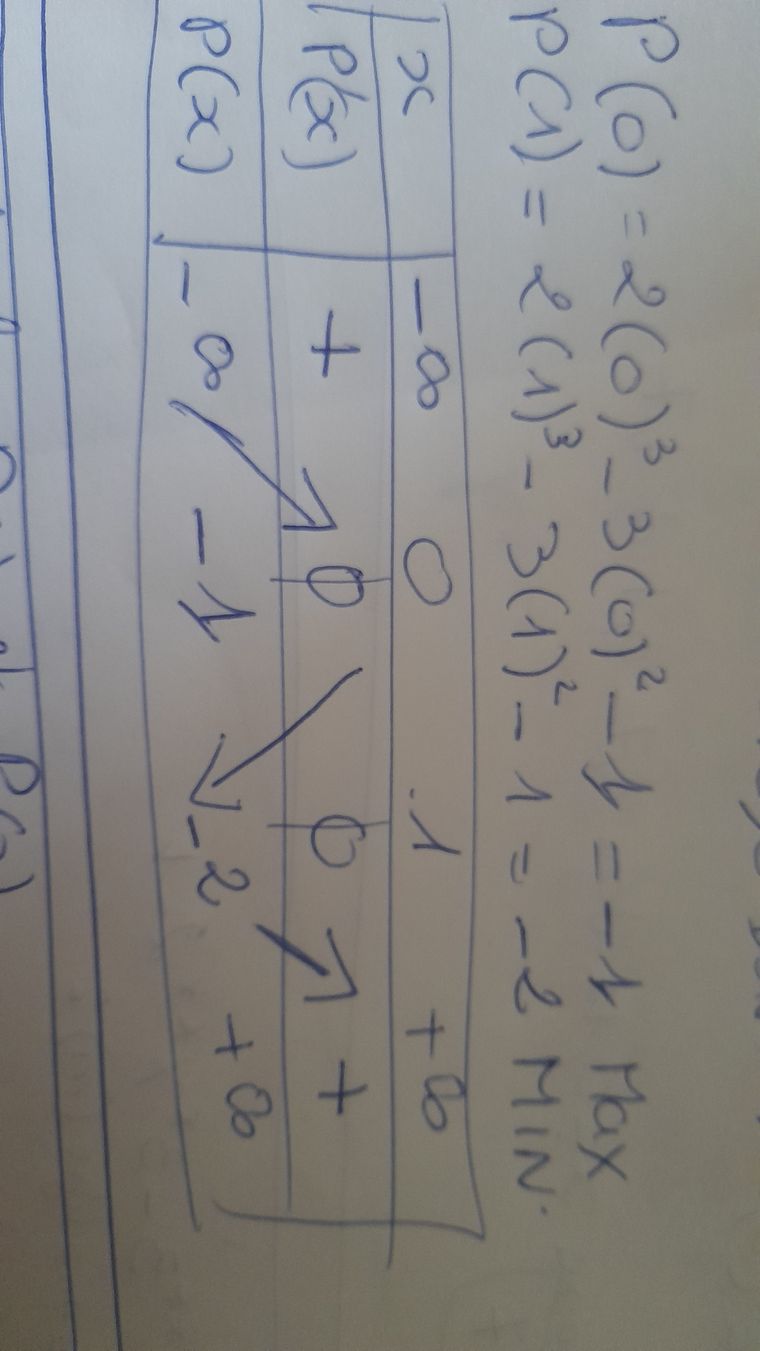 P(0) = 2(0)³ - 3(0)² - 1 = -1 Max
P(1) = 2(1)³ - 3(1)² - 1 = -2 MIN.
x -∞ 0 1 +∞
P'(x) + 0 0 +
P(x) -∞ ↗ -1 ↘ -2 ↗ +∞